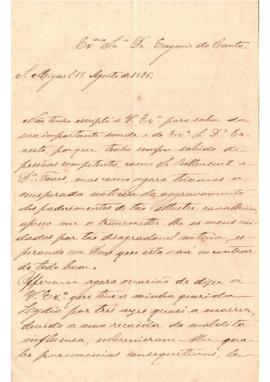 Exmo Snr Dr Eugenio do Canto.
S. Miguel 18 Agosto de 1895.
Não tenho escripto a V. Exa para saber da
sua importante saude e do Exmo Sr. Dr. Er-
nesto, porque tenho sempre sabido de
pessoas competentes, como Sr. Bettencourt e
Dr. mas como agora tivemos a
inesperada noticia da aggravamento
dos padecimentos de tão illustre cavalheiro,
apreço me a transmittir-lhe os meus cui-
dados por tão desagradavel noticia, es-
perando em Deus que esta o vá encontrar
de todo bem.
Offerece agora occasião de dizer a
V. Exa que tive a minha querida
Leydia por tres vezes quasi a morrer,
devido a uma recaida da maldita
influenza, sobrevieram-lhe qua-
tro pneumonias consequitivas, te